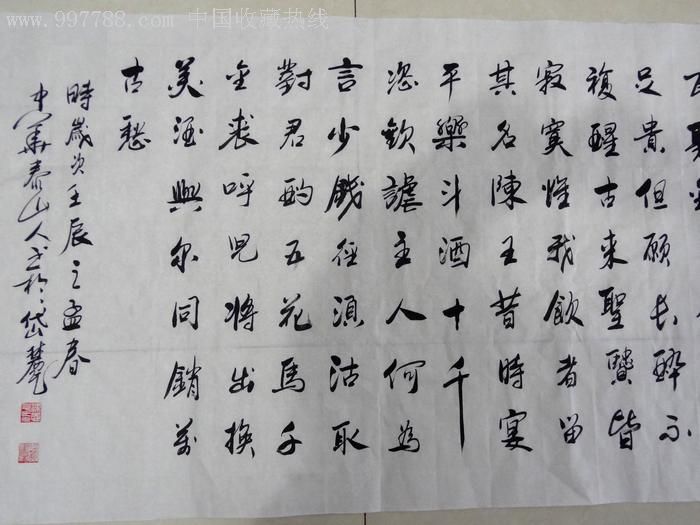 www.997788.com 中国收藏热线
足貴但願長醉不
複醒古來聖賢皆
寂寞惟我飲者留
其名陳王昔時宴
平樂斗酒十千
恣歡謔主人何為
言少錢徑須沽取
對君酌五花馬千
金裘呼兒將出換
美酒與尔同銷萬
古愁
時歲次壬辰之孟春
中華泰山人书於岱麓